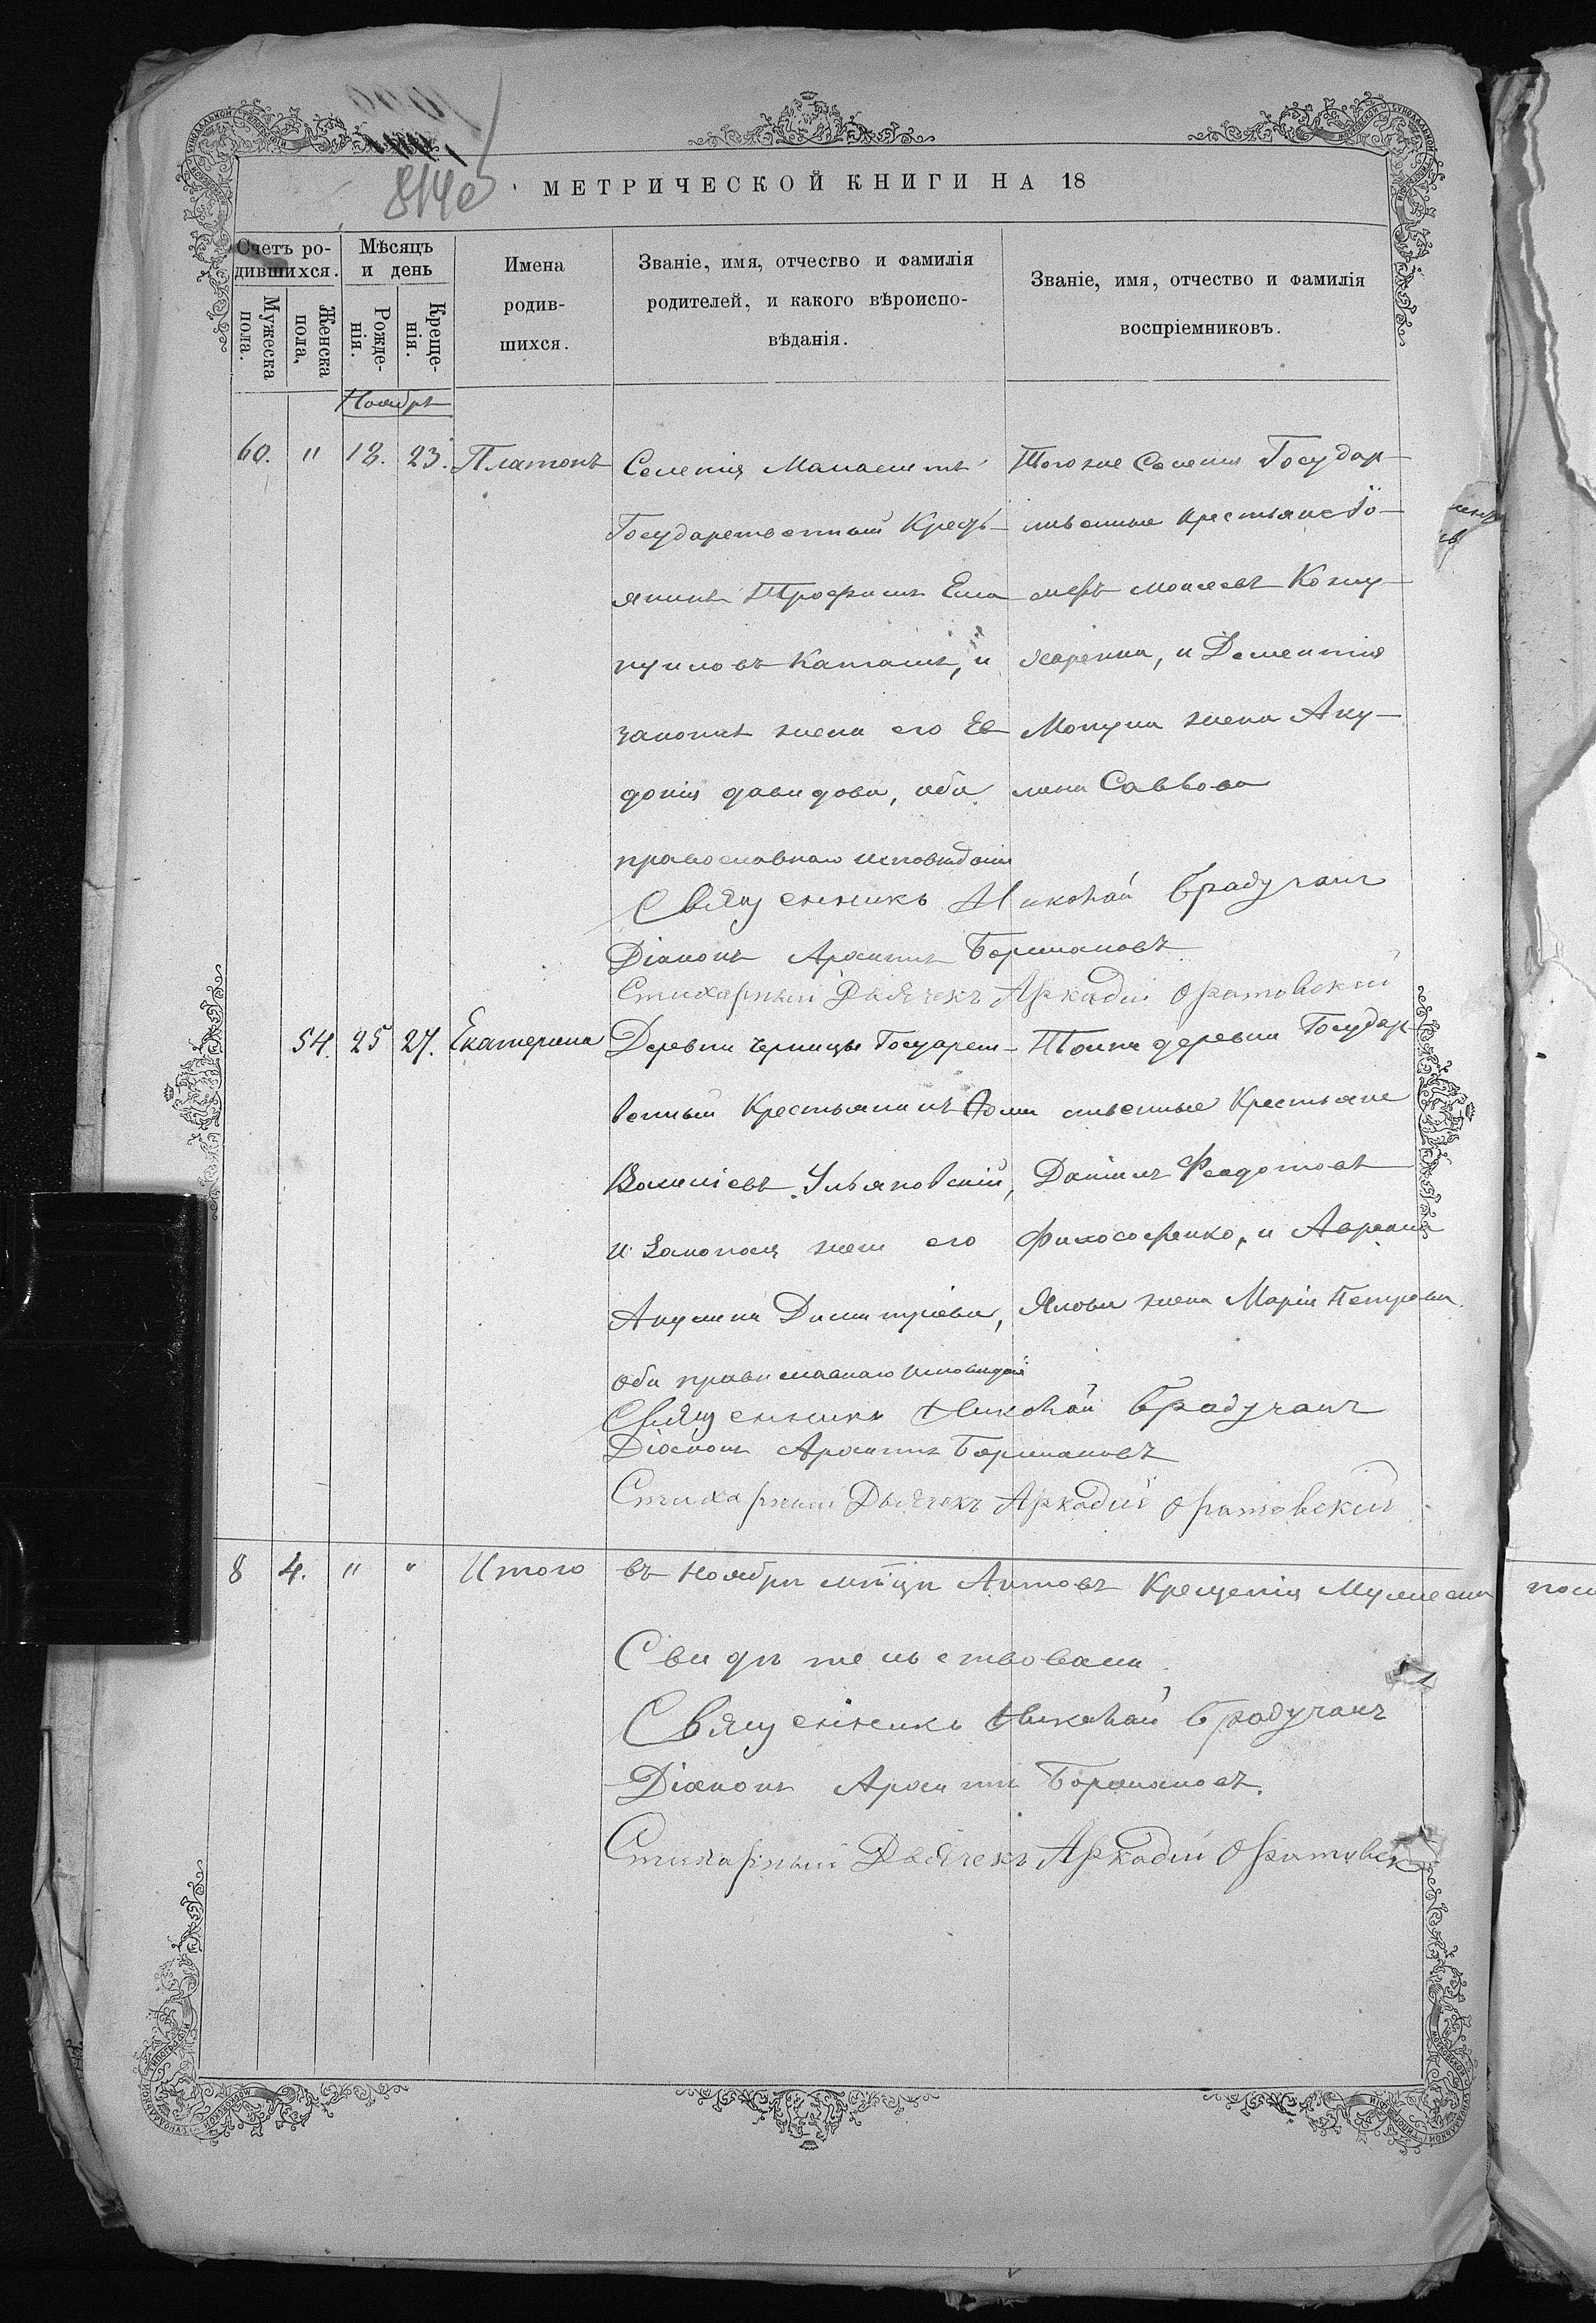 814 об
МЕТРИЧЕСКОЙ КНИГИ НА 18
Счетъ ро-
дившихся.
Мужеска
пола.
Женска
пола,
Мѣсяцъ
и день
Рожде-
нія.
Креще-
нія.
Имена
родив-
шихся.
Званіе, имя, отчество и фамилія
родителей, и какого вѣроиспо-
вѣданія.
Званіе, имя, отчество и фамилія
воспріемниковъ.
Ноябрь
60. " 18. 23. Платонъ
Селенія
Государственный Кресть-
янинъ Трофимъ Ема
нуиловъ Катанъ, и
законная жена его Ев
докія Давидова, оба
православнаго исповѣданія
Тогоже Селенія Государ-
ственные крестьяне
Моисеевъ Кожу-
харенко, и Дементія
Мокуна жена Аку-
лина Саввова
Священникъ Николай Брадучанъ
Діаконъ
Стихарный Дьячекъ Аркадій Оратовскій
54. 25 27. Екатерина
Деревни Черницы Государст-
венный Крестьянинъ Фома
Василіевъ Ульяновскій,
и Законная жена его
Акулина Димитріева,
оба православнаго исповѣданія
Тойже деревни Государ-
ственные Крестьяне
Даніилъ Феодотовъ
Философенко, и
Ялова жена Марія Петрова.
Священникъ Николай Брадучанъ
Діаконъ
Стихарный Дьячекъ Аркадій Оратовскій
8 4. " " Итого въ Ноябрѣ мѣсяцѣ Актовъ Крещенія Мужеска
Свидѣтельствовали
Священникъ Николай Брадучанъ
Діаконъ
Стихарный Дьячекъ Аркадій Оратовск